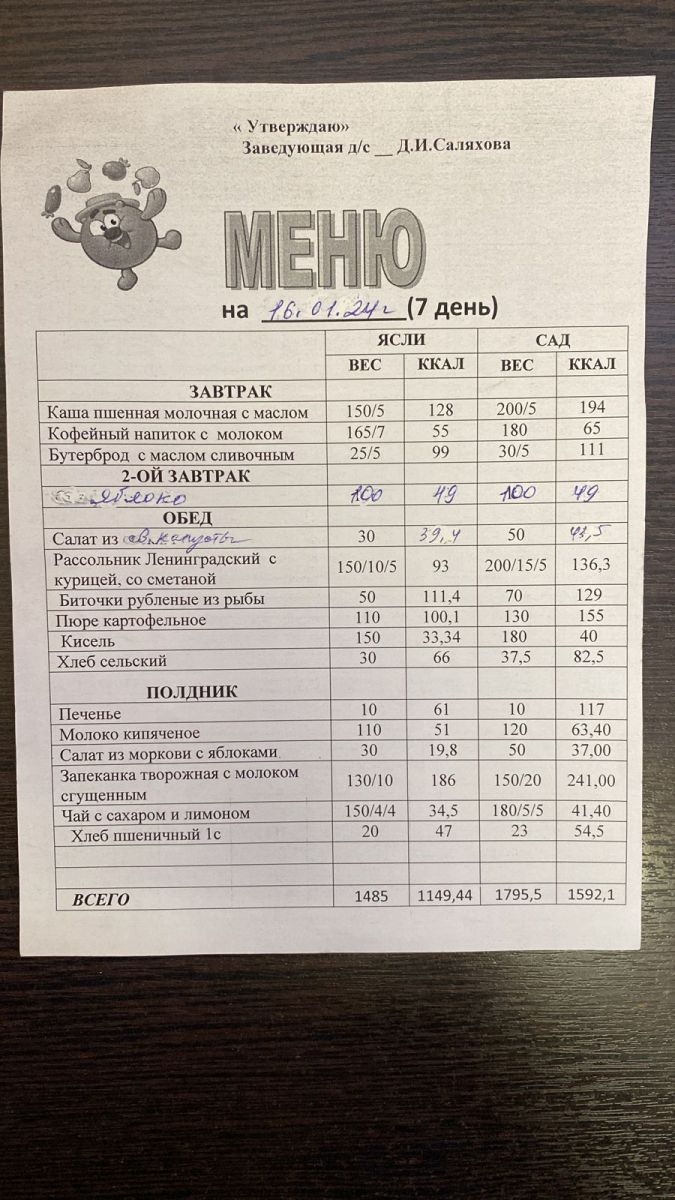 « Утверждаю»
Заведующая д/с __ Д.И.Саляхова
МЕНЮ
на 16.01.24г (7 день)
ЯСЛИ САД
ВЕС ККАЛ ВЕС ККАЛ
ЗАВТРАК
Каша пшенная молочная с маслом 150/5 128 200/5 194
Кофейный напиток с молоком 165/7 55 180 65
Бутерброд с маслом сливочным 25/5 99 30/5 111
2-ОЙ ЗАВТРАК
яблоко 100 49 100 49
ОБЕД
Салат из св.капусты 30 39,4 50 41,5
Рассольник Ленинградский с
курицей, со сметаной 150/10/5 93 200/15/5 136,3
Биточки рубленые из рыбы 50 111,4 70 129
Пюре картофельное 110 100,1 130 155
Кисель 150 33,34 180 40
Хлеб сельский 30 66 37,5 82,5
ПОЛДНИК
Печенье 10 61 10 117
Молоко кипяченое 110 51 120 63,40
Салат из моркови с яблоками 30 19,8 50 37,00
Запеканка творожная с молоком
сгущенным 130/10 186 150/20 241,00
Чай с сахаром и лимоном 150/4/4 34,5 180/5/5 41,40
Хлеб пшеничный 1с 20 47 23 54,5
ВСЕГО 1485 1149,44 1795,5 1592,1